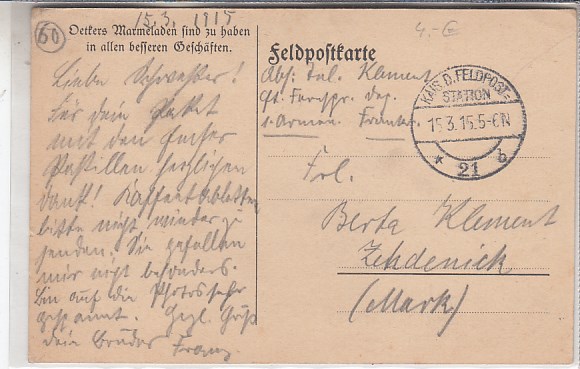 60
15.3. 1915
4.-€
Oetkers Marmeladen sind zu haben
in allen besseren Geschäften.
Feldpostkarte
Liebe Schwester!
Für dein Paket
mit den
Pastillen herzlichen
Dank! Kaffeetabletten
bitte nicht wieder zu
senden. Sie gefallen
mir nicht besonders.
Bin auf die Photos sehr
gespannt. Herzl. Gruß
dein Bruder Franz
Abs: Klement
Fernspr.
1. Armee
KAIS. D. FELDPOST=
STATION
15.3.15.5-6N
* 21 b
Frl.
Berta Klement
Zehdenick
(Mark)